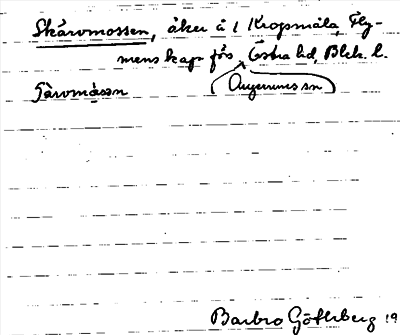 Skärvmossen, åker å 1 Kropsmåla, Fly-
menskap. förs. Östra hd, Blek. l.
Augerums sn
Barbro Göthberg 19